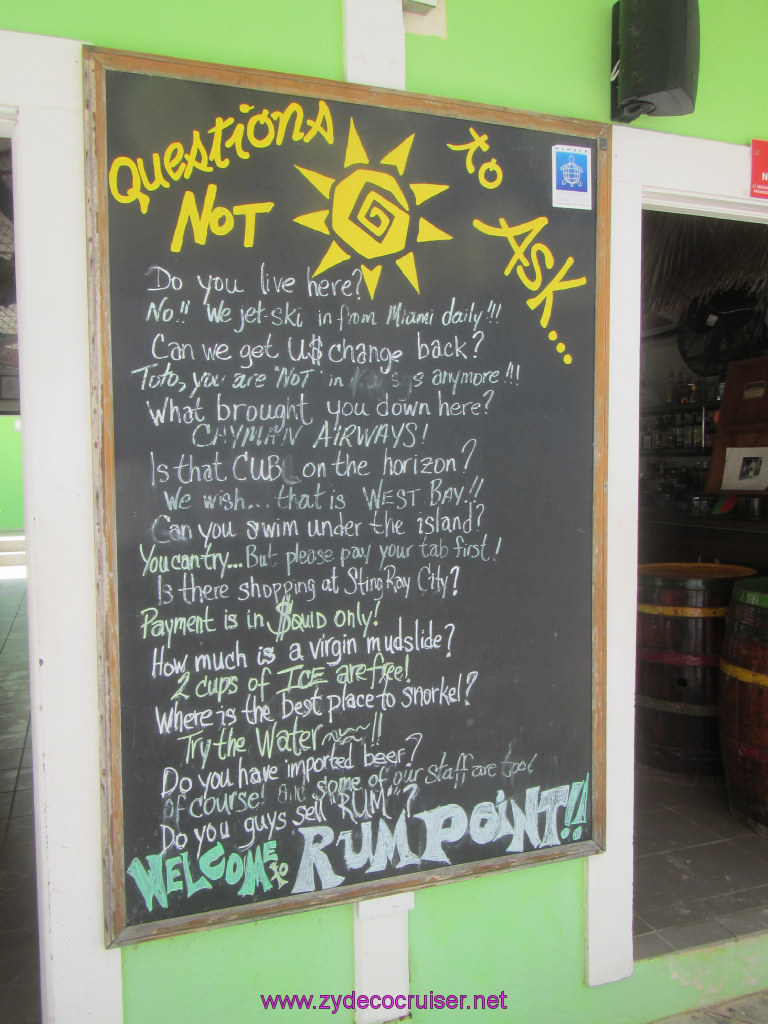 Questions
Not
to
Ask...
Do you live here?
No!! We jet-ski in from Miami daily!!!
Can we get U$ change back?
Toto, you are "Not" in anymore!!!
What brought you down here?
CAYMAN AIRWAYS!
Is that CUB on the horizon?
We wish... that is WEST BAY!!
Can you swim under the island?
You can try... But please pay your tab first!
Is there shopping at Sting Ray City?
Payment is in $quid only!
How much is a virgin mudslide?
2 cups of ICE are free!
Where is the best place to snorkel?
Try the Water~~~!!
Do you have imported beer?
of course! and some of our staff are too!
Do you guys sell "RUM"?
WELCOME to RUM POINT!!
www.zydecocruiser.net